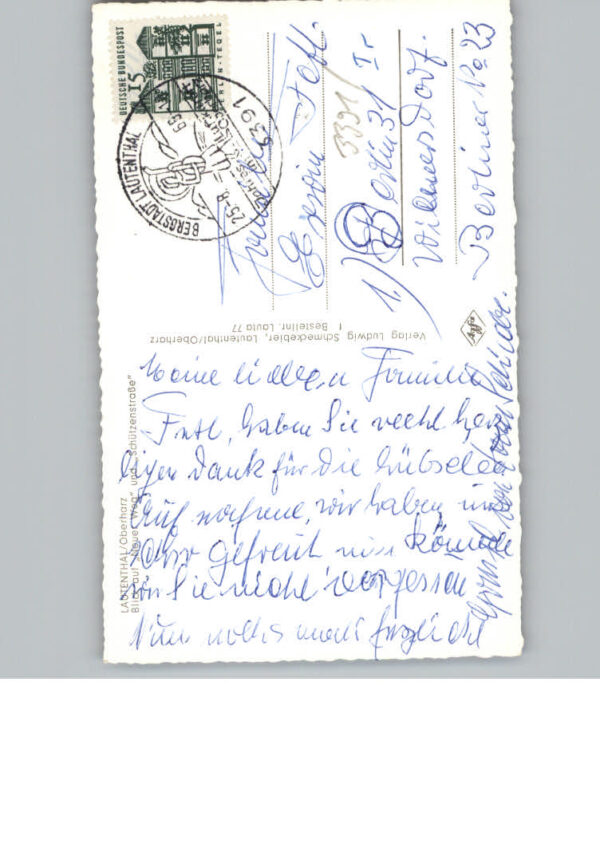 DEUTSCHE BUNDESPOST
15
BERLIN-TEGEL
BERGSTADT LAUTENTHAL
25.-8.
3391
Familie
Erwin Fell.
3391
1.) Berlin 31
Wilmersdorf.
Berliner No 23
Verlag Ludwig Schmeckebier, Lautenthal/Oberharz
Bestellnr. Lauta 77
LAUTENTHAL/Oberharz
Blick auf „Neuer Weg“ und „Schützenstraße“
Meine lieben Familie
haben Sie recht herz
lichen Dank für die hübsche
Aufnahme, wir haben uns
sehr gefreut
wir Sie nicht vergessen
Nun nochmals herzliche